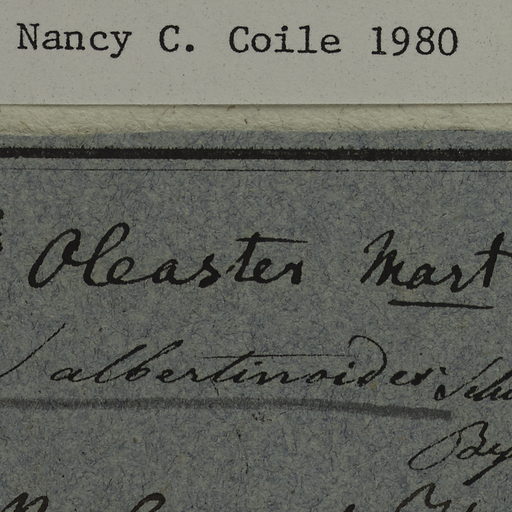 Nancy C. Coile 1980
Oleaster Mart
albertinoides
By